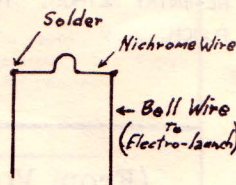 Solder
Nichrome Wire
Bell Wire
To
(Electro-launch)